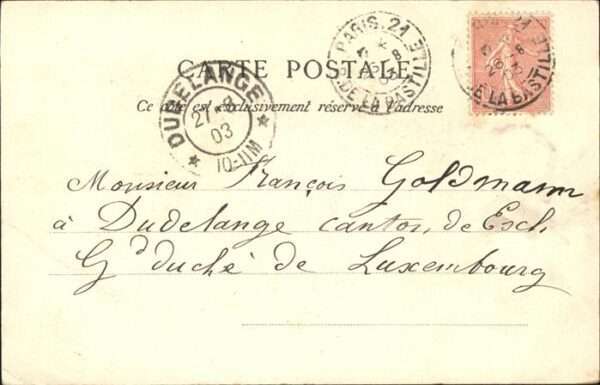 CARTE POSTALE
Ce côté est exclusivement réservé à l'adresse
PARIS. 21
DE LA BASTILLE
DE LA BASTILLE
DUDELANGE
27-8
03
10-11M
Monsieur François Goldmann
à Dudelange canton de Esch
Gd duché de Luxembourg